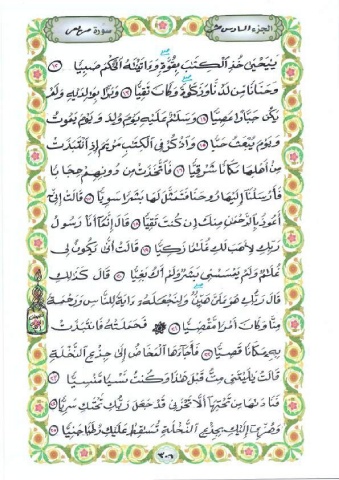 الجزء السادس عشر
سورة مريم
يَٰيَحْيَىٰ خُذِ ٱلْكِتَٰبَ بِقُوَّةٍ وَءَاتَيْنَٰهُ ٱلْحُكْمَ صَبِيًّا ١٢
وَحَنَانًا مِّن لَّدُنَّا وَزَكَوٰةً وَكَانَ تَقِيًّا ١٣ وَبَرًّۢا بِوَٰلِدَيْهِ وَلَمْ
يَكُن جَبَّارًا عَصِيًّا ١٤ وَسَلَٰمٌ عَلَيْهِ يَوْمَ وُلِدَ وَيَوْمَ يَمُوتُ
وَيَوْمَ يُبْعَثُ حَيًّا ١٥ وَٱذْكُرْ فِى ٱلْكِتَٰبِ مَرْيَمَ إِذِ ٱنتَبَذَتْ
مِنْ أَهْلِهَا مَكَانًا شَرْقِيًّا ١٦ فَٱتَّخَذَتْ مِن دُونِهِمْ حِجَابًا
فَأَرْسَلْنَآ إِلَيْهَا رُوحَنَا فَتَمَثَّلَ لَهَا بَشَرًا سَوِيًّا ١٧ قَالَتْ إِنِّىٓ
أَعُوذُ بِٱلرَّحْمَٰنِ مِنكَ إِن كُنتَ تَقِيًّا ١٨ قَالَ إِنَّمَآ أَنَا۠ رَسُولُ
رَبِّكِ لِأَهَبَ لَكِ غُلَٰمًا زَكِيًّا ١٩ قَالَتْ أَنَّىٰ يَكُونُ لِى
غُلَٰمٌ وَلَمْ يَمْسَسْنِى بَشَرٌ وَلَمْ أَكُ بَغِيًّا ٢٠ قَالَ كَذَٰلِكِ
قَالَ رَبُّكِ هُوَ عَلَىَّ هَيِّنٌ وَلِنَجْعَلَهُۥٓ ءَايَةً لِّلنَّاسِ وَرَحْمَةً
مِّنَّا وَكَانَ أَمْرًا مَّقْضِيًّا ٢١ فَحَمَلَتْهُ فَٱنتَبَذَتْ
بِهِۦ مَكَانًا قَصِيًّا ٢٢ فَأَجَآءَهَا ٱلْمَخَاضُ إِلَىٰ جِذْعِ ٱلنَّخْلَةِ
قَالَتْ يَٰلَيْتَنِى مِتُّ قَبْلَ هَٰذَا وَكُنتُ نَسْيًا مَّنسِيًّا ٢٣
فَنَادَىٰهَا مِن تَحْتِهَآ أَلَّا تَحْزَنِى قَدْ جَعَلَ رَبُّكِ تَحْتَكِ سَرِيًّا ٢٤
وَهُزِّىٓ إِلَيْكِ بِجِذْعِ ٱلنَّخْلَةِ تُسَٰقِطْ عَلَيْكِ رُطَبًا جَنِيًّا ٢٥
٣٠٦